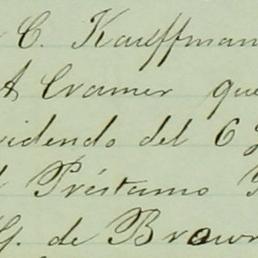 C. Kauffman
A Cramer que
videndo del 6
Préstamo
de Brown